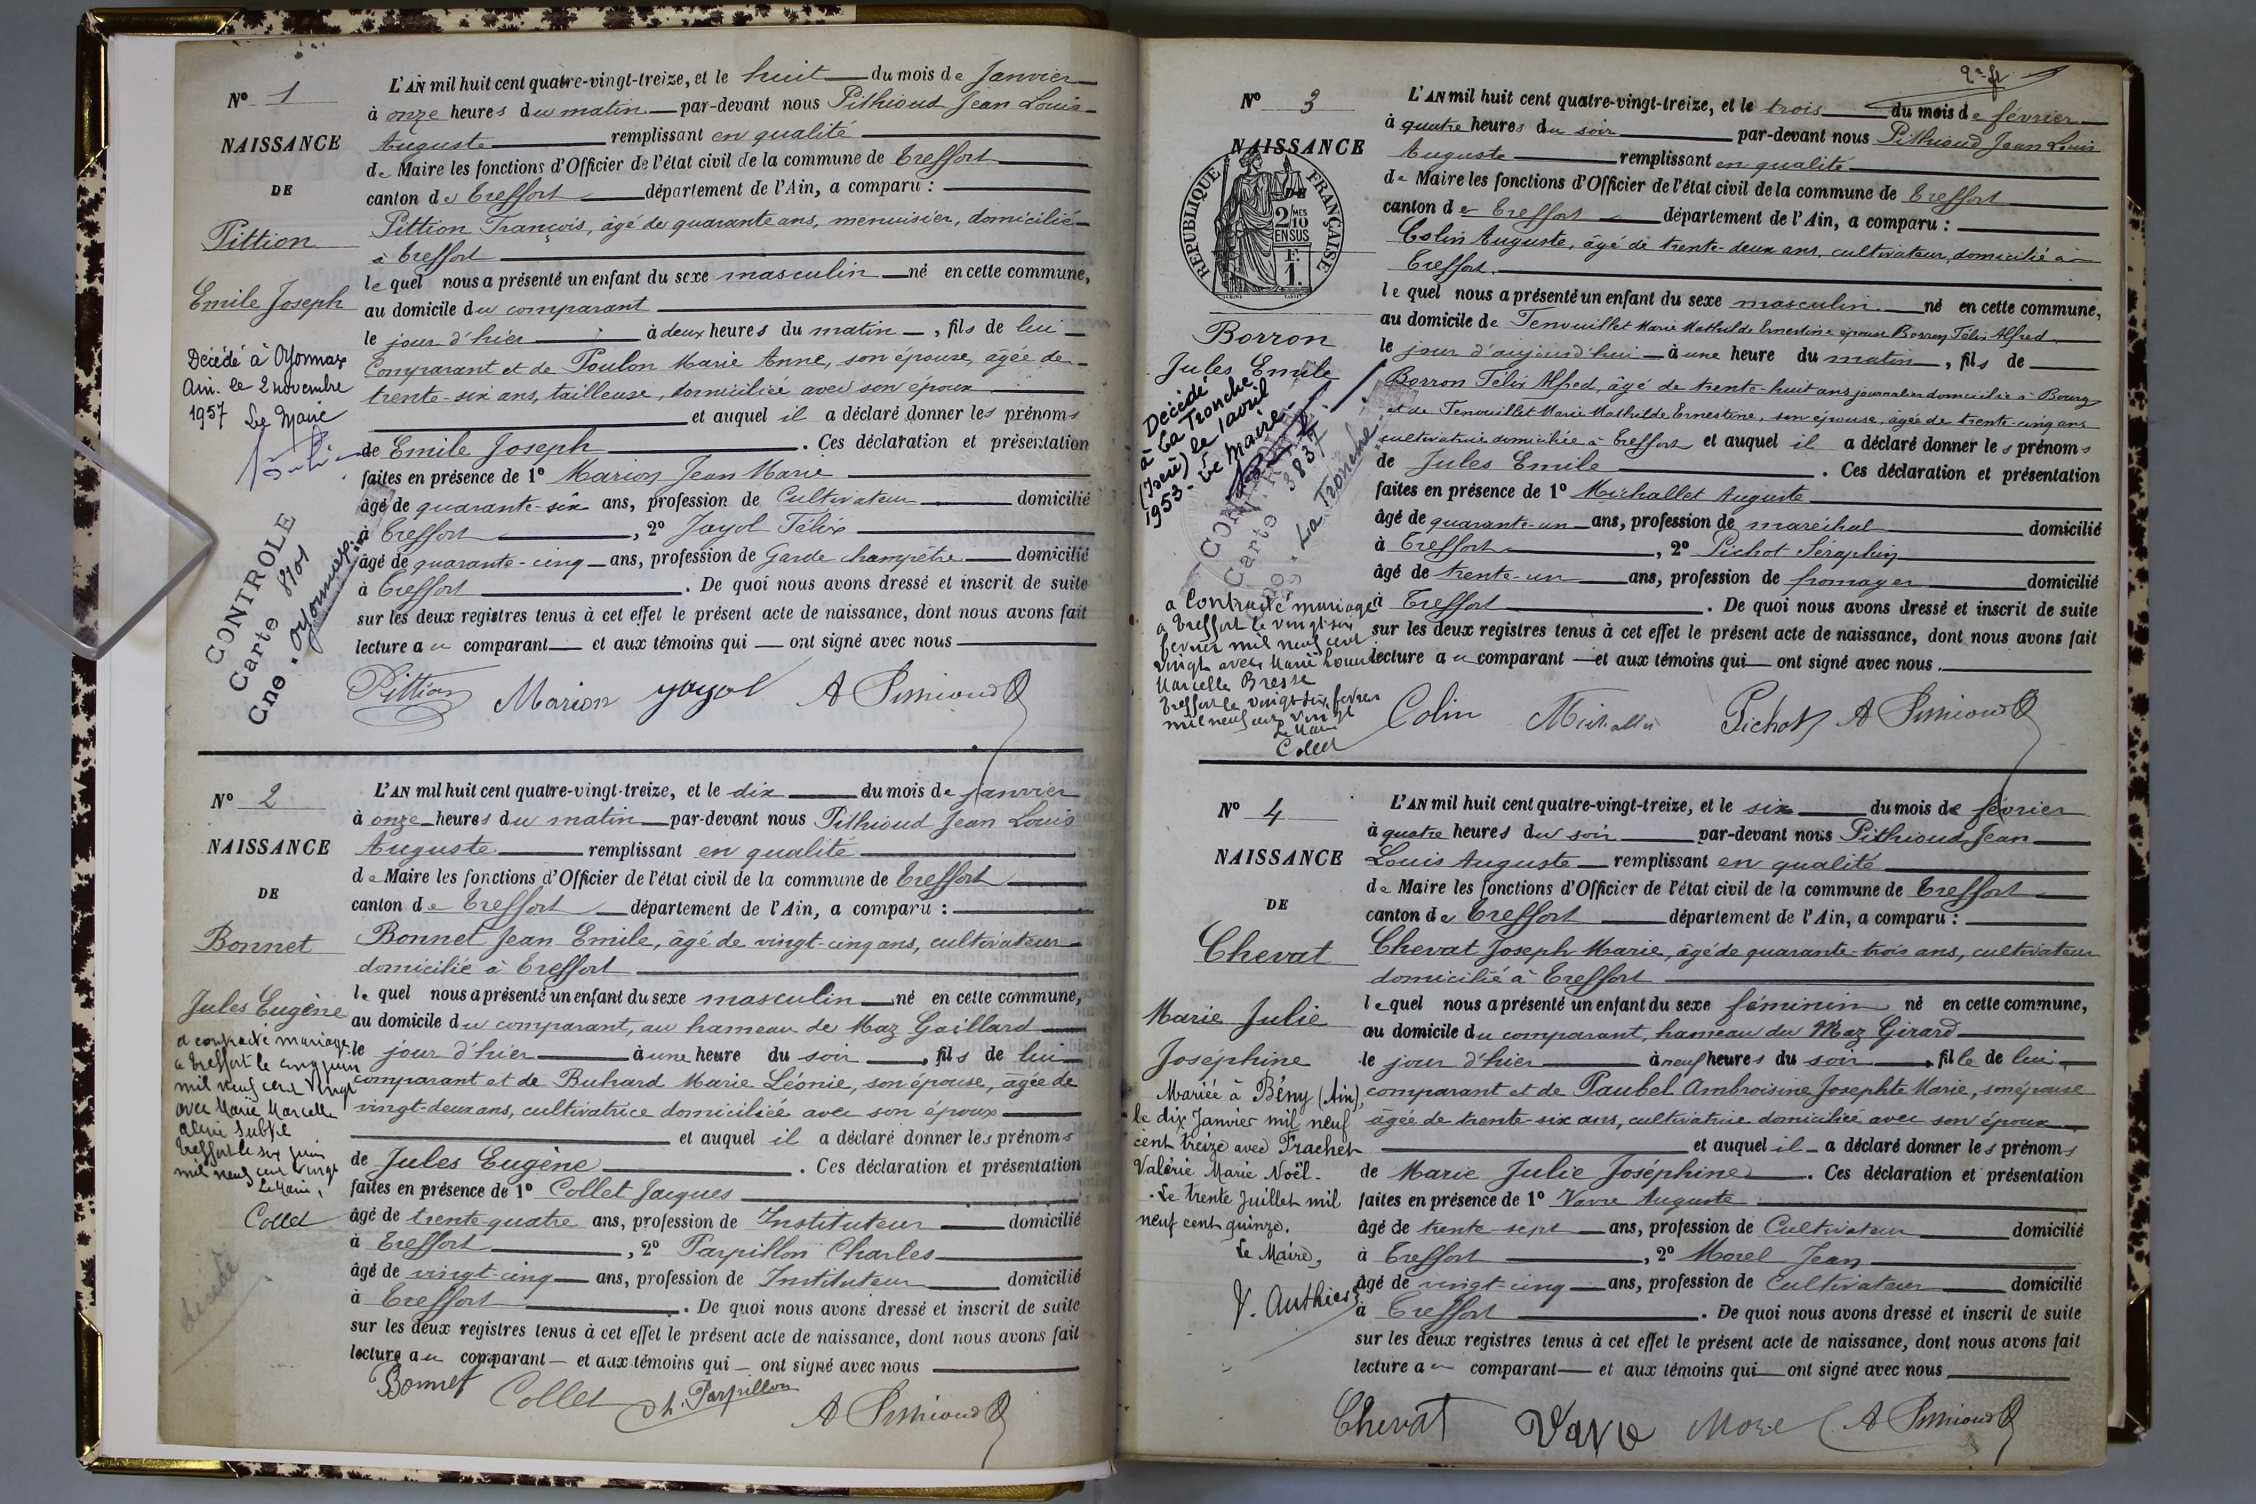 Nº 1
NAISSANCE
DE
Pittion
Emile Joseph
Décédé à Oyonnax
Ain. le 2 novembre
1957 Le Maire
CONTROLE
Carte 8101
Cne. Oyonnax
L'AN mil huit cent quatre-vingt-treize, et le huit du mois de Janvier
à onze heures du matin par-devant nous Pithioud Jean Louis
Auguste remplissant en qualité
de Maire les fonctions d'Officier de l'état civil de la commune de Treffort
canton de Treffort département de l'Ain, a comparu :
Pittion François, âgé de quarante ans, menuisier, domicilié
à Treffort
lequel nous a présenté un enfant du sexe masculin né en cette commune,
au domicile du comparant
le jour d'hier à deux heures du matin, fils de lui
Comparant et de Poulon Marie Anne, son épouse, âgée de
trente-six ans, tailleuse, domiciliée avec son époux
et auquel il a déclaré donner les prénoms
de Emile Joseph. Ces déclaration et présentation
faites en présence de 1º Marion Jean Marie
âgé de quarante-six ans, profession de Cultivateur domicilié
à Treffort, 2º Jayol Félix
âgé de quarante-cinq ans, profession de Garde champêtre domicilié
à Treffort. De quoi nous avons dressé et inscrit de suite
sur les deux registres tenus à cet effet le présent acte de naissance, dont nous avons fait
lecture au comparant et aux témoins qui ont signé avec nous
Pittion Marion Jayol A Pithioud
Nº 2
NAISSANCE
DE
Bonnet
Jules Eugène
a contracté mariage
à Treffort le cinq juin
mil neuf cent vingt
avec Marie Marcelle
Treffort le six juin
mil neuf cent vingt
Le Maire,
Collet
décédé
L'AN mil huit cent quatre-vingt-treize, et le dix du mois de janvier
à onze heures du matin par-devant nous Pithioud Jean Louis
Auguste remplissant en qualité
de Maire les fonctions d'Officier de l'état civil de la commune de Treffort
canton de Treffort département de l'Ain, a comparu :
Bonnet Jean Emile, âgé de vingt-cinq ans, cultivateur
domicilié à Treffort
lequel nous a présenté un enfant du sexe masculin né en cette commune,
au domicile du comparant, au hameau de Maz Gaillard
le jour d'hier à une heure du soir, fils de lui
comparant et de Buhard Marie Léonie, son épouse, âgée de
vingt-deux ans, cultivatrice domiciliée avec son époux
et auquel il a déclaré donner les prénoms
de Jules Eugène. Ces déclaration et présentation
faites en présence de 1º Collet Jacques
âgé de trente-quatre ans, profession de Instituteur domicilié
à Treffort, 2º Parpillon Charles
âgé de vingt-cinq ans, profession de Instituteur domicilié
à Treffort. De quoi nous avons dressé et inscrit de suite
sur les deux registres tenus à cet effet le présent acte de naissance, dont nous avons fait
lecture au comparant et aux témoins qui ont signé avec nous
Bonnet Collet Ch. Parpillon A Pithioud
Nº 3
NAISSANCE
DE
RÉPUBLIQUE FRANÇAISE
2/10
EN SUS
F.
1.
Borron
Jules Emile
Décédé
à La Tronche
(Isère) le 1 avril
1953 - Le Maire
CONTROLE
Carte 3837
La Tronche
a Contracté mariage
à Treffort le vingt-six
février mil neuf cent
vingt avec Marie Louise
Marcelle Bresse
Treffort le vingt-six février
mil neuf cent vingt
Le Maire
Collet
L'AN mil huit cent quatre-vingt-treize, et le trois du mois de février
à quatre heures du soir par-devant nous Pithioud Jean Louis
Auguste remplissant en qualité
de Maire les fonctions d'Officier de l'état civil de la commune de Treffort
canton de Treffort département de l'Ain, a comparu :
Colin Auguste, âgé de trente-deux ans, cultivateur, domicilié à
Treffort.
lequel nous a présenté un enfant du sexe masculin né en cette commune,
au domicile de Tenouillet Marie Mathilde Ernestine épouse Borron Félix Alfred
le jour d'aujourd'hui à une heure du matin, fils de
Borron Félix Alfred, âgé de trente-huit ans journalier domicilié à Bourg
et de Tenouillet Marie Mathilde Ernestine, son épouse, âgée de trente-cinq ans
cultivatrice domiciliée à Treffort et auquel il a déclaré donner les prénoms
de Jules Emile. Ces déclaration et présentation
faites en présence de 1º Michallet Auguste
âgé de quarante-un ans, profession de maréchal domicilié
à Treffort, 2º Pichot Séraphin
âgé de trente-un ans, profession de fromager domicilié
à Treffort. De quoi nous avons dressé et inscrit de suite
sur les deux registres tenus à cet effet le présent acte de naissance, dont nous avons fait
lecture au comparant et aux témoins qui ont signé avec nous.
Colin Michallet Pichot A Pithioud
Nº 4
NAISSANCE
DE
Chevat
Marie Julie
Joséphine
Mariée à Bény (Ain),
le dix Janvier mil neuf
cent treize avec Frachet
Valérie Marie Noël.
Le trente Juillet mil
neuf cent quinze.
Le Maire,
V. Authier
L'AN mil huit cent quatre-vingt-treize, et le six du mois de février
à quatre heures du soir par-devant nous Pithioud Jean
Louis Auguste remplissant en qualité
de Maire les fonctions d'Officier de l'état civil de la commune de Treffort
canton de Treffort département de l'Ain, a comparu :
Chevat Joseph Marie, âgé de quarante-trois ans, cultivateur
domicilié à Treffort
lequel nous a présenté un enfant du sexe féminin né en cette commune,
au domicile du comparant, hameau du Maz Girard
le jour d'hier à neuf heures du soir, fille de lui
comparant et de Paubel Ambroisine Josephte Marie, son épouse
âgée de trente-six ans, cultivatrice domiciliée avec son époux
et auquel il a déclaré donner les prénoms
de Marie Julie Joséphine. Ces déclaration et présentation
faites en présence de 1º Vavre Auguste
âgé de trente-sept ans, profession de Cultivateur domicilié
à Treffort, 2º Morel Jean
âgé de vingt-cinq ans, profession de Cultivateur domicilié
à Treffort. De quoi nous avons dressé et inscrit de suite
sur les deux registres tenus à cet effet le présent acte de naissance, dont nous avons fait
lecture au comparant et aux témoins qui ont signé avec nous
Chevat Vavre Morel A Pithioud